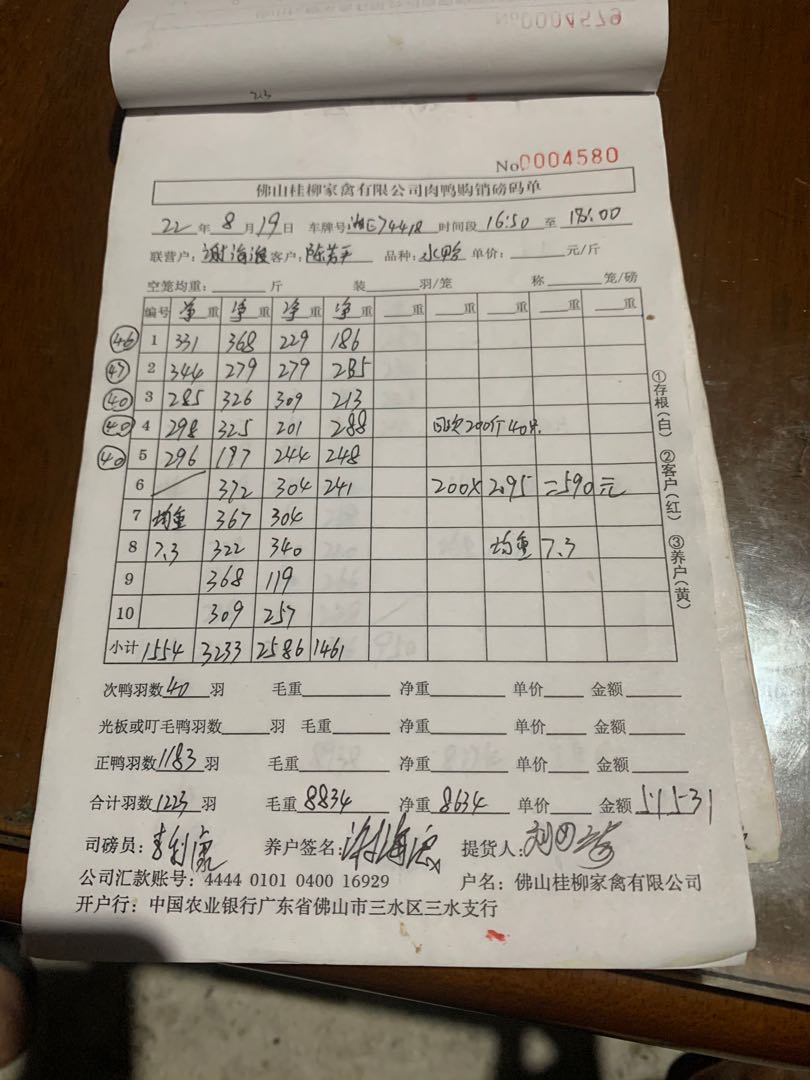 No 0004579
No 0004580
佛山桂柳家禽有限公司肉鸭购销磅码单
22年8月19日 车牌号:湘E74418 时间段 16:50 至 18:00
联营户: 客户: 品种:水鸭 单价: 元/斤
空笼均重: 斤 装 羽/笼 称 笼/磅
编号 净重 净重 净重 净重 重 重 重 重 重
46 1 331 368 229 186
47 2 344 279 279 285
40 3 285 326 309 213
40 4 298 325 201 288 次200斤40只
40 5 296 197 244 248
6 372 304 241 200X 2.95 =590元
7 均重 367 304
8 7.3 322 340 均重 7.3
9 368 119
10 309 257
小计 1554 3233 2586 1461
①存根(白) ②客户(红) ③养户(黄)
次鸭羽数 40 羽 毛重 净重 单价 金额
光板或叮毛鸭羽数 羽 毛重 净重 单价 金额
正鸭羽数 1183 羽 毛重 净重 单价 金额
合计羽数 1223 羽 毛重 8834 净重 8634 单价 金额 51531
司磅员: 养户签名: 提货人:
公司汇款账号:4444 0101 0400 16929 户名:佛山桂柳家禽有限公司
开户行:中国农业银行广东省佛山市三水区三水支行